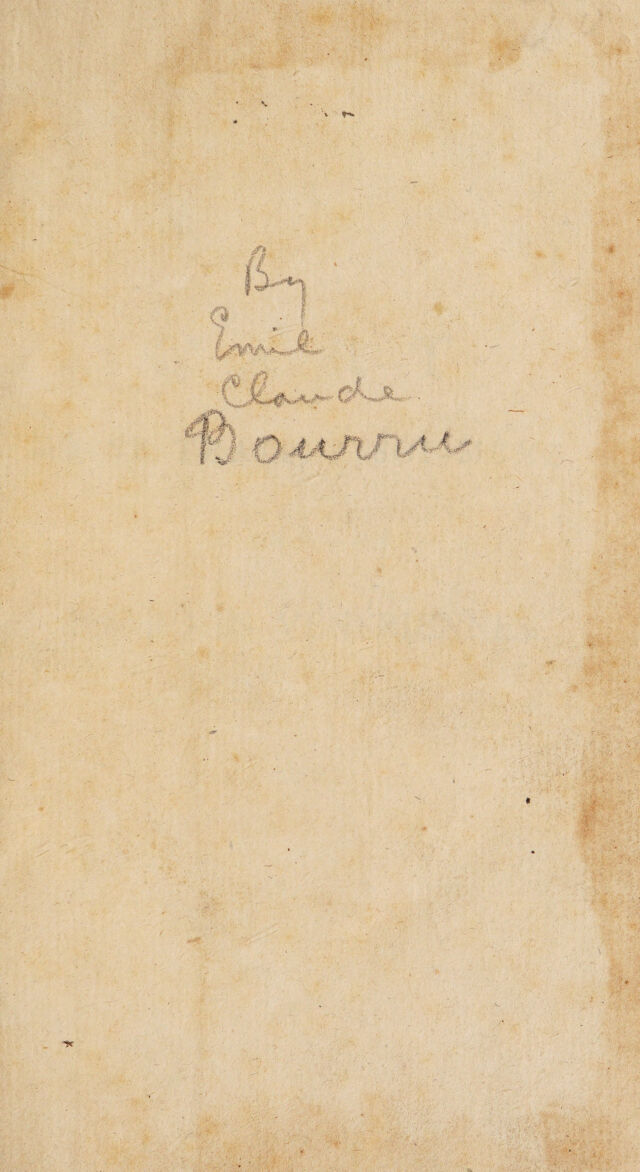 By
Emile
Claude
Bourru